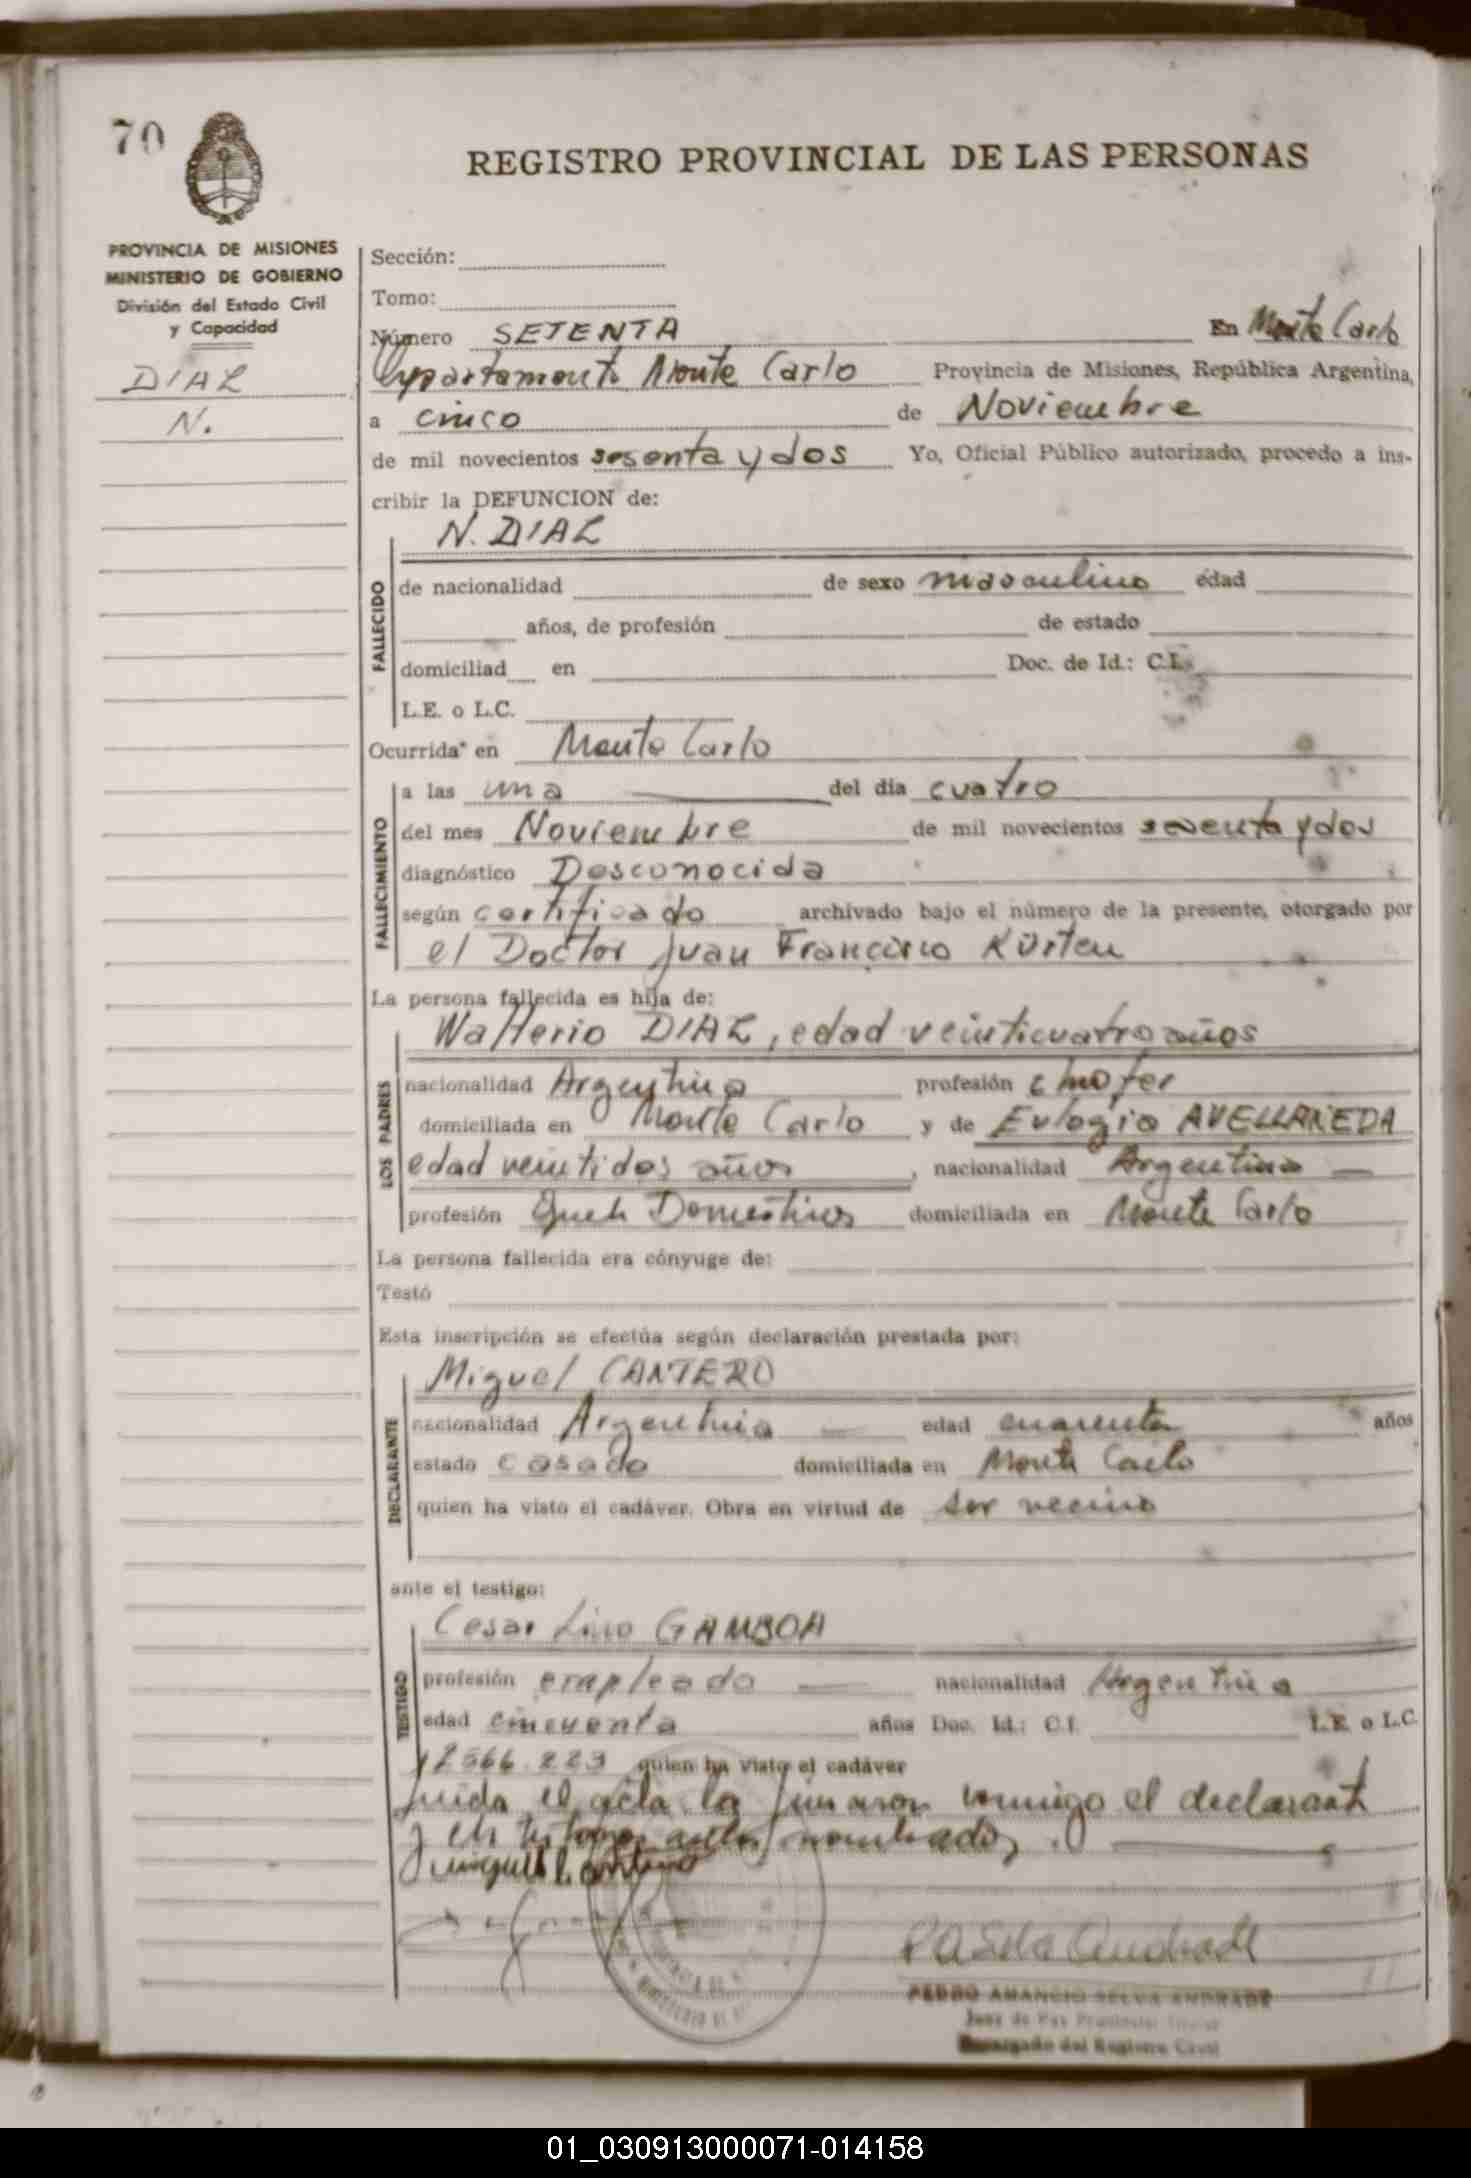 70
REGISTRO PROVINCIAL DE LAS PERSONAS
PROVINCIA DE MISIONES
MINISTERIO DE GOBIERNO
División del Estado Civil
y Capacidad
DIAZ
N.
Sección:
Tomo:
Número SETENTA En Monte Carlo
Departamento Monte Carlo Provincia de Misiones, República Argentina,
a cinco de Noviembre
de mil novecientos sesenta y dos Yo, Oficial Público autorizado, procedo a ins-
cribir la DEFUNCION de:
N. DIAZ
FALLECIDO
de nacionalidad de sexo masculino edad
años, de profesión de estado
domiciliad en Doc. de Id.: C.I.
L.E. o L.C.
Ocurrida en Monte Carlo
FALLECIMIENTO
a las una del día cuatro
del mes Noviembre de mil novecientos sesenta y dos
diagnóstico Desconocida
según certificado archivado bajo el número de la presente, otorgado por
el Doctor Juan Francisco Kürten
La persona fallecida es hija de:
LOS PADRES
Walterio DIAZ, edad veinticuatro años
nacionalidad Argentina profesión chofer
domiciliada en Monte Carlo y de Eulogia AVELLANEDA
edad veintidos años, nacionalidad Argentina
profesión Queh Domesticos domiciliada en Monte Carlo
La persona fallecida era cónyuge de:
Testó
Esta inscripción se efectúa según declaración prestada por:
DECLARANTE
Miguel CANTERO
nacionalidad Argentina edad cuarenta años
estado casado domiciliada en Monte Carlo
quien ha visto el cadáver. Obra en virtud de ser vecino
ante el testigo:
TESTIGO
Cesar Lino GAMBOA
profesión empleado nacionalidad Argentina
edad cincuenta años Doc. Id.: C.I. L.E. o L.C.
2566.223 quien ha visto el cadáver
Leida el acta la firmaron conmigo el declarante
y el testigo antes nombrados.
Miguel Cantero
P A Selva Andrade
PEDRO AMANCIO SELVA ANDRADE
Juez de Paz
Encargado del Registro Civil
01_030913000071-014158